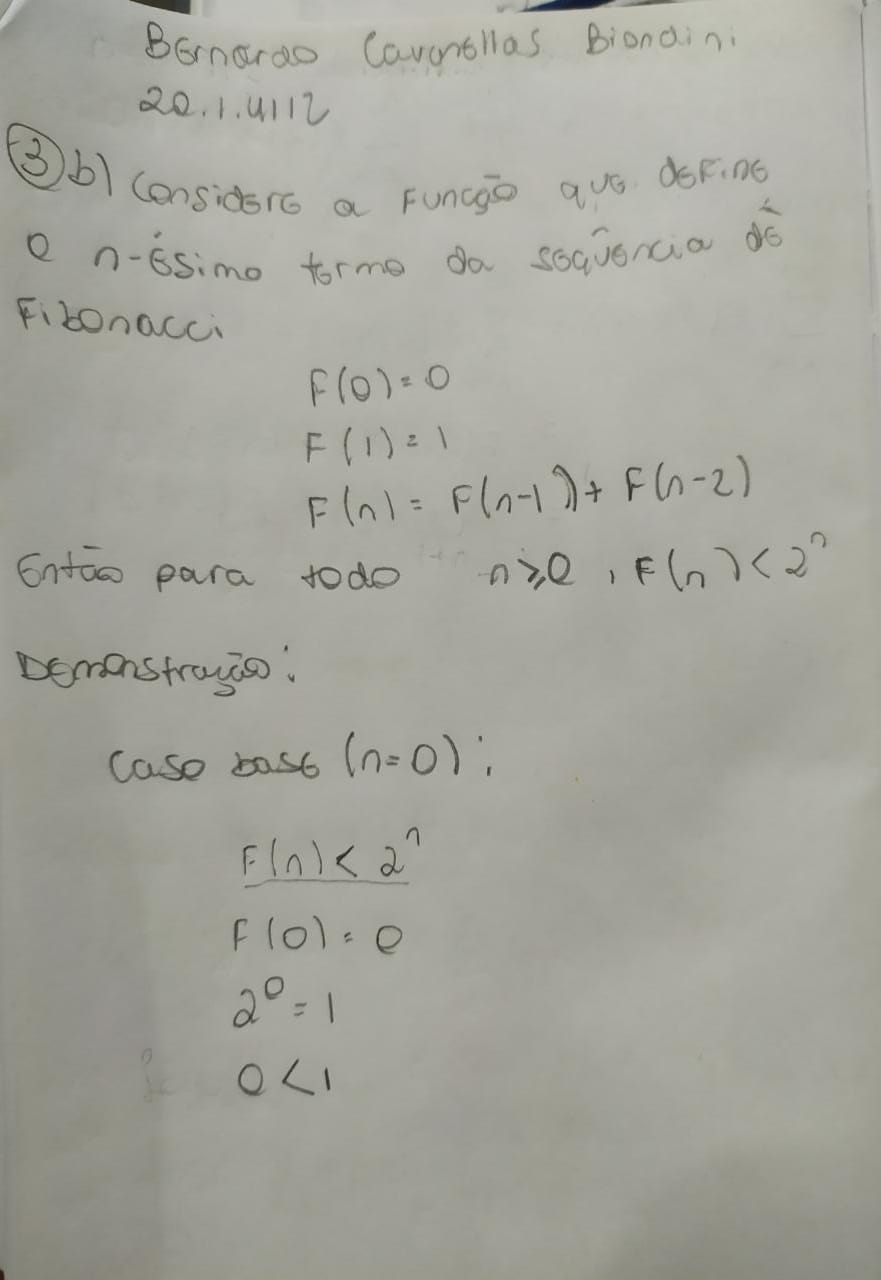 Bernardo Cavanellas Biondini
20.1.4112
3 b) Considere a função que define
o n-ésimo termo da seqüência de
Fibonacci
F(0)=0
F(1)=1
F(n)= F(n-1)+ F(n-2)
Então para todo n≥0, F(n)<2ⁿ
Demonstração:
Caso base (n=0):
F(n)<2ⁿ
F(0)=0
2⁰=1
0<1